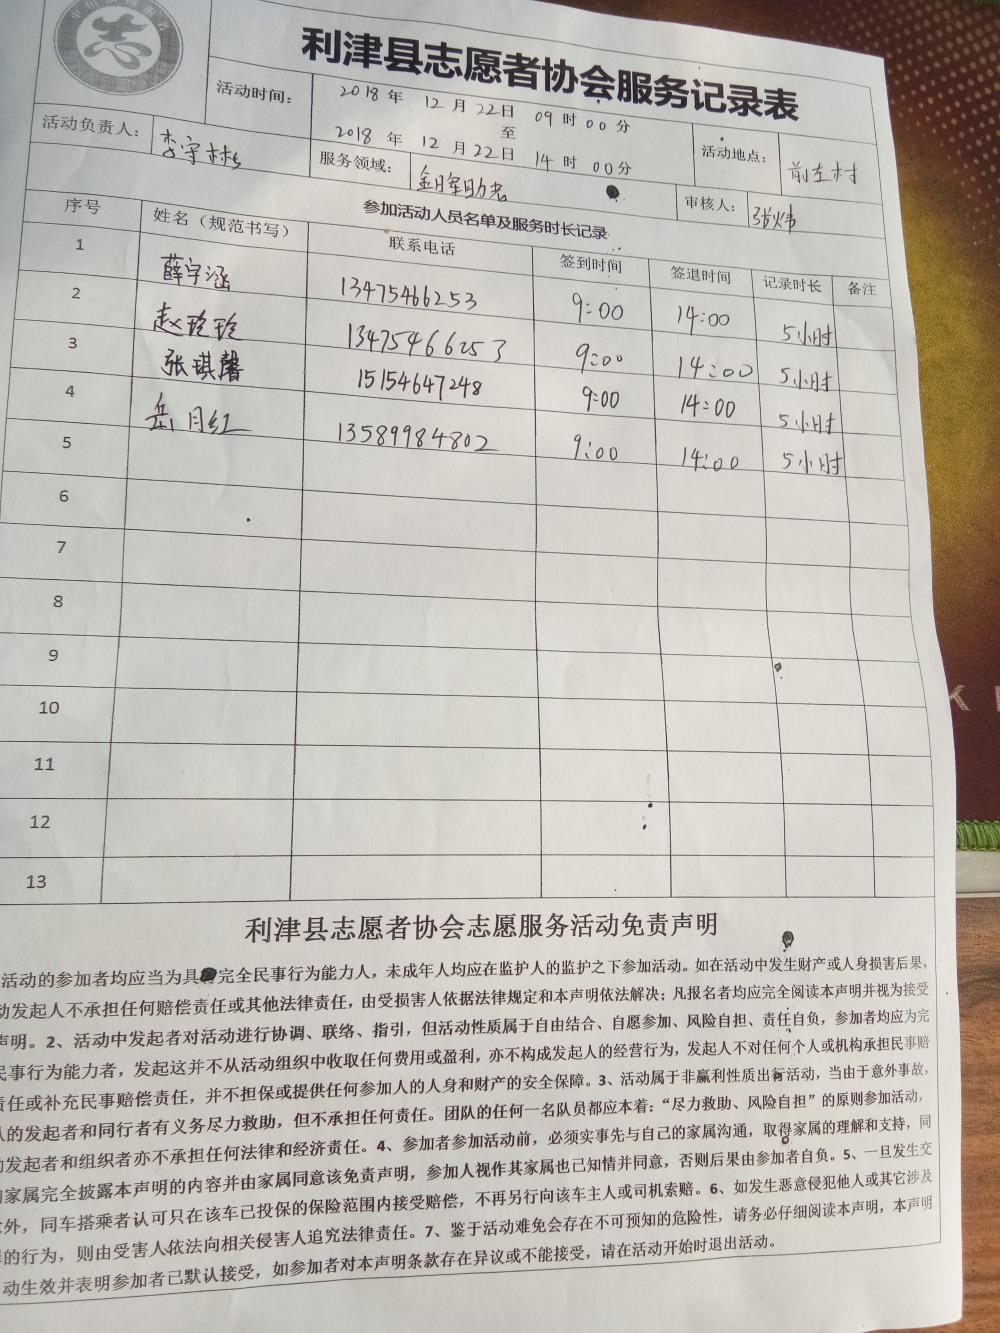 利津县志愿者协会服务记录表
活动时间： 2018 年 12 月 22日 09 时 00 分
至
2018 年 12 月 22日 14 时 00分
活动地点： 前左村
活动负责人： 李守彬
服务领域： 助老
审核人： 张炜
参加活动人员名单及服务时长记录
序号 姓名（规范书写） 联系电话 签到时间 签退时间 记录时长 备注
1 薛宇涵 13475466253 9:00 14:00 5小时
2 赵玲玲 13475466253 9:00 14:00 5小时
3 张琪馨 15154647248 9:00 14:00 5小时
4 岳月红 13589984802 9:00 14:00 5小时
5
6
7
8
9
10
11
12
13
利津县志愿者协会志愿服务活动免责声明
活动的参加者均应当为具 完全民事行为能力人，未成年人均应在监护人的监护之下参加活动。如在活动中发生财产或人身损害后果，
动发起人不承担任何赔偿责任或其他法律责任，由受损害人依据法律规定和本声明依法解决；凡报名者均应完全阅读本声明并视为接受
声明。2、活动中发起者对活动进行协调、联络、指引，但活动性质属于自由结合、自愿参加、风险自担、责任自负，参加者均应为完
民事行为能力者，发起这并不从活动组织中收取任何费用或盈利，亦不构成发起人的经营行为，发起人不对任何个人或机构承担民事赔
责任或补充民事赔偿责任，并不担保或提供任何参加人的人身和财产的安全保障。3、活动属于非赢利性质出行活动，当由于意外事故，
人的发起者和同行者有义务尽力救助，但不承担任何责任。团队的任何一名队员都应本着：“尽力救助、风险自担”的原则参加活动，
动发起者和组织者亦不承担任何法律和经济责任。4、参加者参加活动前，必须实事先与自己的家属沟通，取得家属的理解和支持，同
家属完全披露本声明的内容并由家属同意该免责声明，参加人视作其家属也已知情并同意，否则后果由参加者自负。5、一旦发生交
外，同车搭乘者认可只在该车已投保的保险范围内接受赔偿，不再另行向该车主人或司机索赔。6、如发生恶意侵犯他人或其它涉及
的行为，则由受害人依法向相关侵害人追究法律责任。7、鉴于活动难免会存在不可预知的危险性，请务必仔细阅读本声明，本声明
动生效并表明参加者已默认接受，如参加者对本声明条款存在异议或不能接受，请在活动开始时退出活动。